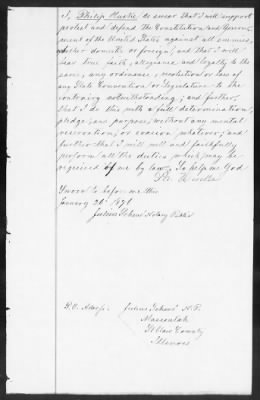 I, Philip
do swear that I will support
protect and defend the Constitution and Govern-
ment of the United States against all enemies,
whether domestic or foreign, and that I will
bear true faith, allegiance and loyalty to the
same, any ordinance, resolution or law of
any State Convention or Legislature to the
contrary notwithstanding; and further,
that I do this with a full determination,
pledge and purpose, without any mental
reservation or evasion whatever; and
further that I will well and faithfully
perform all the duties which may be
required of me by law, So help me God
Sworn to before me this
January 26th 1871
Julius Scheve Notary Public
P.O. Adress: Julius Scheve N.P.
Mascoutah
St Clair County
Illinois